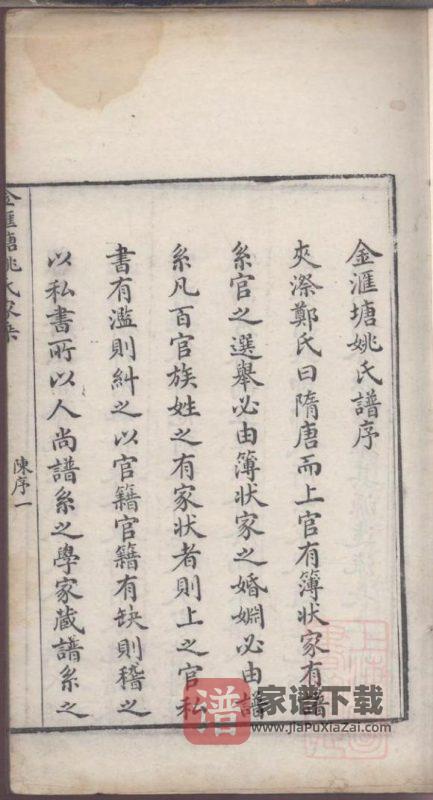 金滙塘姚氏譜序
夾漈鄭氏曰隋唐而上官有簿狀家有譜
系官之選舉必由簿狀家之婚婣必由譜
系凡百官族姓之有家狀者則上之官私
書有濫則糾之以官籍官籍有缺則稽之
以私書所以人尚譜系之學家藏譜系之
金滙塘姚氏家乘
陳序一
谱
家谱下载
www.jiaPuxiaZai.com